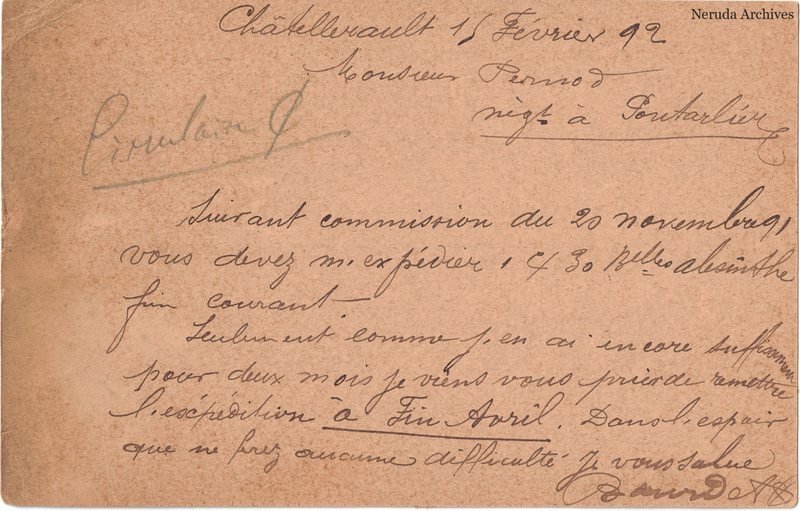 Neruda Archives
Châtellerault 15 Février 92
Monsieur Pernod
négt à Pontarlier
Circulaire
Suivant commission du 20 novembre 91
vous devez m.expédier 1 30 Belles absinthe
fin courant
Seulement comme j.en ai encore suffisamment
pour deux mois je viens vous prier de remettre
l.expédition à Fin Avril. Dans l.espoir
que ne frez aucune difficulté je vous salue